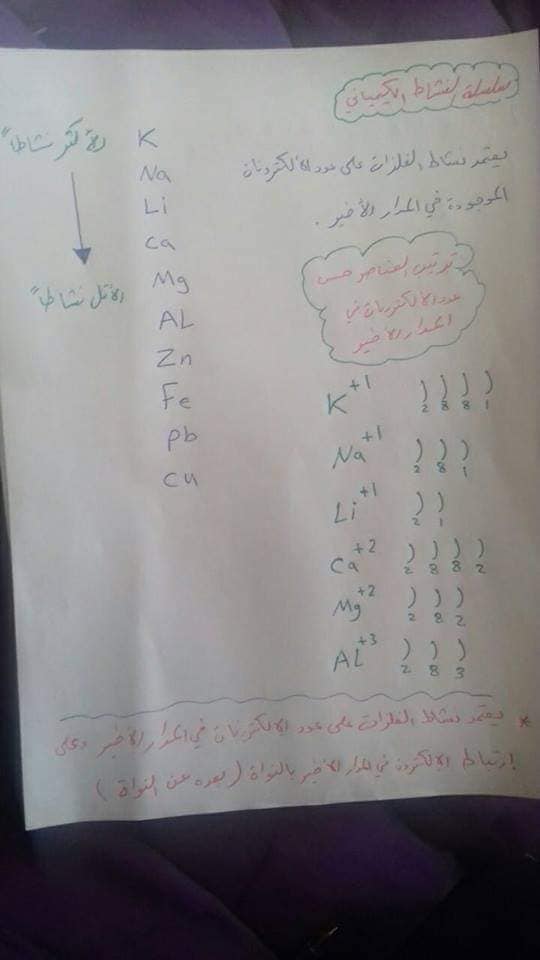 سلسلة النشاط الكيميائي
يعتمد نشاط الفلزات على عدد الالكترونات
الموجودة في المدار الأخير .
ترتيب العناصر حسب
عدد الالكترونات في
المدار الأخير
K+1 ) ) ) ) 2 8 8 1
Na+1 ) ) ) 2 8 1
Li+1 ) ) 2 1
Ca+2 ) ) ) ) 2 8 8 2
Mg+2 ) ) ) 2 8 2
AL+3 ) ) ) 2 8 3
الأكثر نشاطاً
الأقل نشاطاً
K
Na
Li
Ca
Mg
AL
Zn
Fe
Pb
Cu
* يعتمد نشاط الفلزات على عدد الالكترونات في المدار الأخير وعلى
إرتباط الالكترون في المدار الأخير بالنواة ( بعده عن النواة )